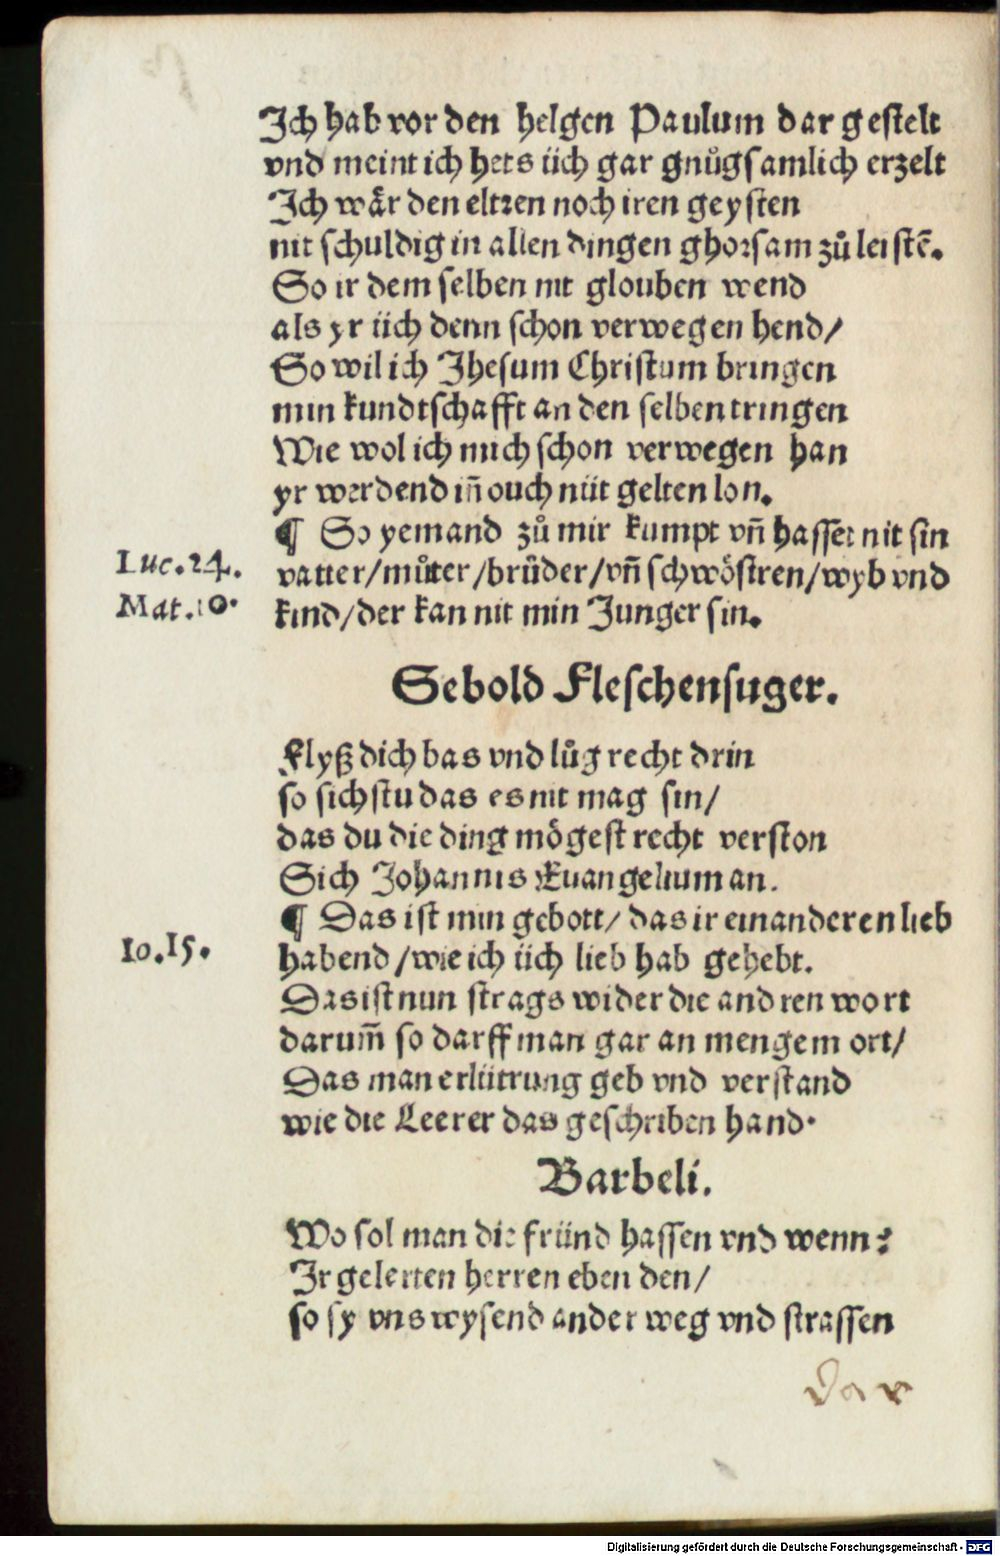 Ich hab vor den helgen Paulum dar gestelt
vnd meint ich hets üch gar gnůgsamlich erzelt
Ich wår den eltren noch iren geysten
nit schuldig in allen dingen ghorsam zů leistē.
So ir dem selben nit glouben wend
als yr üch denn schon verwegen hend/
So wil ich Jhesum Christum bringen
min kundtschafft an den selben tringen
Wie wol ich mich schon verwegen han
yr werdend in̄ ouch nüt gelten lon.
¶ So yemand zů mir kumpt vn̄ hasset nit sin
Luc.24. vatter/můter/brůder/vn̄ schwöstren/wyb vnd
Mat.10. kind/der kan nit min Junger sin.
Sebold Fleschensuger.
Flyß dich bas vnd lůg recht drin
so sichstu das es nit mag sin/
das du die ding mögest recht verston
Sich Johannis Euangelium an.
¶ Das ist min gebott/ das ir einanderen lieb
Io.15. habend/wie ich üch lieb hab gehebt.
Das ist nun strags wider die andren wort
darum̄ so darff man gar an mengem ort/
Das man erlütrung geb vnd verstand
wie die Leerer das geschriben hand.
Barbeli.
Wo sol man die fründ hassen vnd wenn?
Ir gelerten herren eben den/
so sy vns wysend ander weg vnd strassen
dar
Digitalisierung gefördert durch die Deutsche Forschungsgemeinschaft - DFG